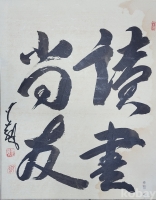 讀書
尚友